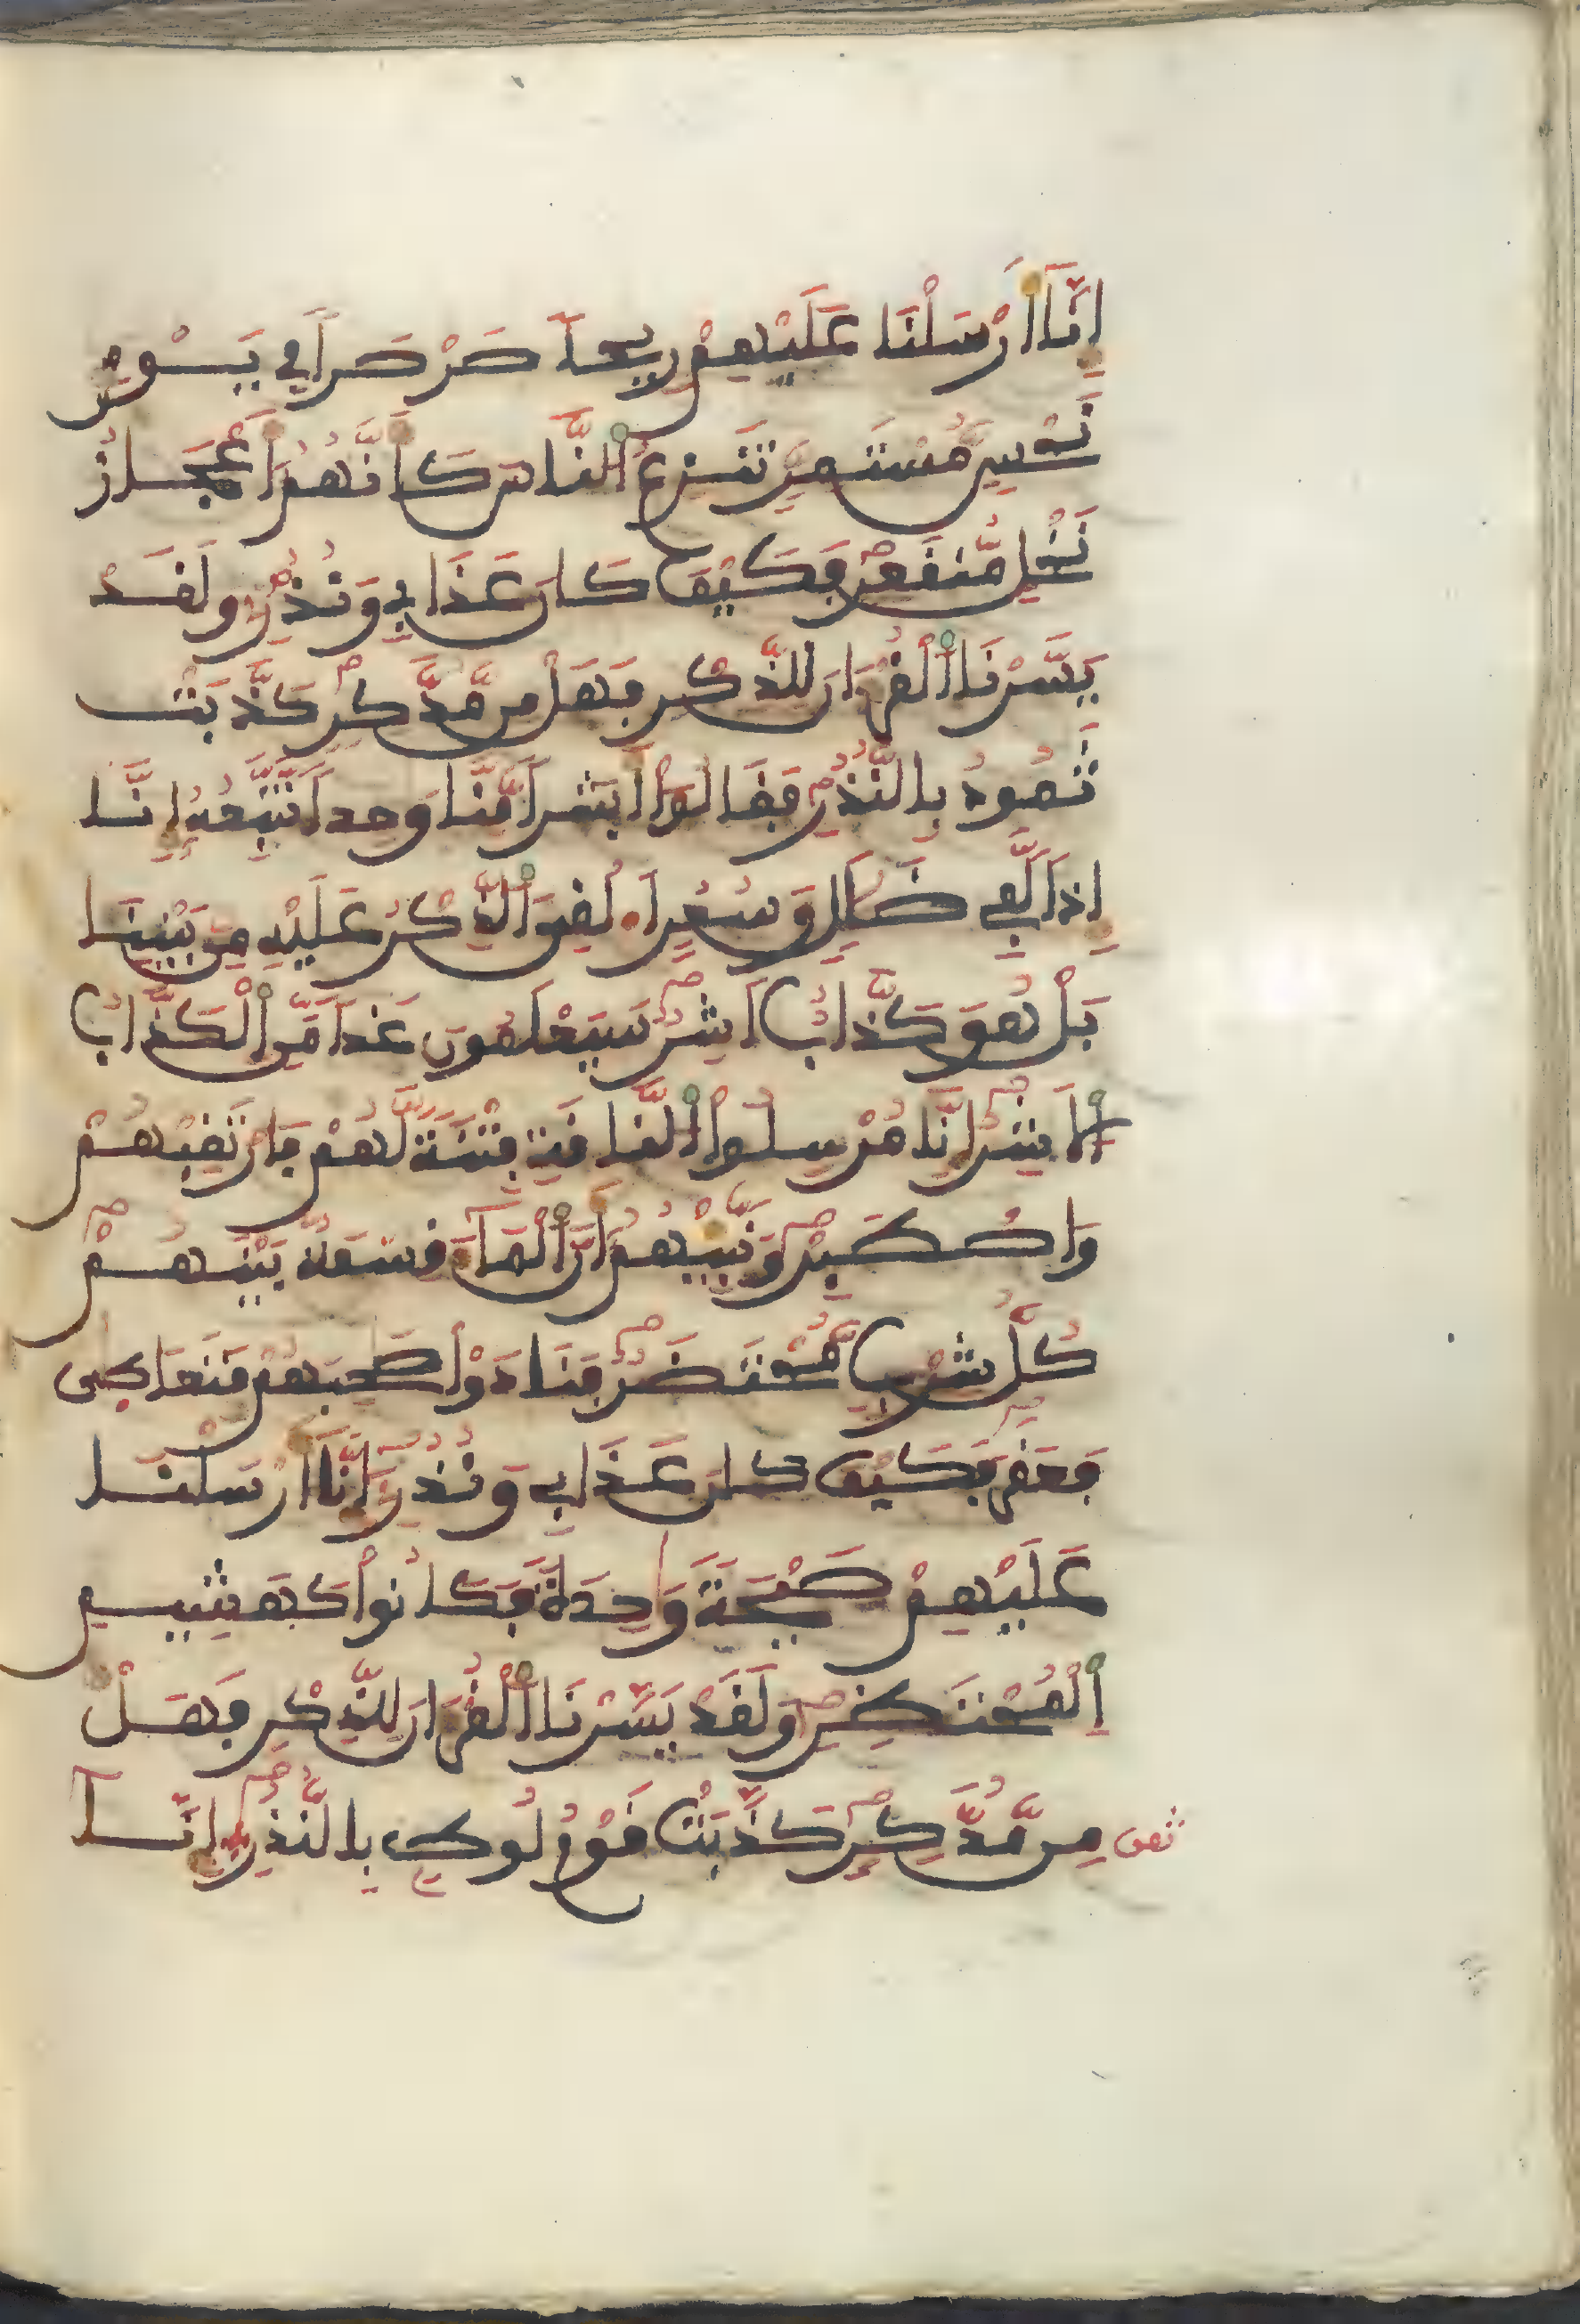 اِنَّآ أَرْسَلْنَا عَلَيْهِمْ رِيحاً صَرْصَراً فِي يَوْمِ
نَحْسٍ مُّسْتَمِرٍّ تَنزِعُ اُ۬لنَّاسَ كَأَنَّهُمُۥٓ أَعْجَازُ
نَخْلٍ مُّنفَعِرٍ فَكَيْفَ كَانَ عَذَابِي وَنُذُرِۦ وَلَقَدْ
يَسَّرْنَا اَ۬لْقُرْءَانَ لِلذِّكْرِ فَهَلْ مِن مُّدَّكِرٍ كَذَّبَتْ
ثَمُودُ بِالنُّذُرِ فَقَالُوٓاْ أَبَشَراً مِّنَّا وَٰحِداً نَّتَّبِعُهُۥٓ إِنَّا
إِذاً لَّفِي ضَلَٰلٍ وَسُعُرٍ اَ.لْقِيَ اَ۬لذِّكْرُ عَلَيْهِ مِنۢ بَيْنِنَا
بَلْ هُوَ كَذَّابٌ اَشِرٌ سَيَعْلَمُونَ غَداً مَّنِ اِ۬لْكَذَّابُ
اُ۬لَاشِرُ إِنَّا مُرْسِلُواْ اُ۬لنَّاقَةِ فِتْنَةً لَّهُمْ فَارْتَقِبْهُمْ
وَاصْطَبِرْ وَنَبِّيْهُمُۥٓ أَنَّ اَ۬لْمَآءَ قِسْمَةٌ بَيْنَهُمْ
كُلُّ شِرْبٍ مُّحْتَضَرٌ فَنَادَوْاْ صَٰحِبَهُمْ فَتَعَاطَىٰ
فَعَقَرَ فَكَيْفَ كَانَ عَذَابِي وَنُذُرِۦٓ إِنَّآ أَرْسَلْنَا
عَلَيْهِمْ صَيْحَةً وَٰحِدَةً فَكَانُواْ كَهَشِيمِ
اِ۬لْمُحْتَظِرِ وَلَقَدْ يَسَّرْنَا اَ۬لْقُرْءَانَ لِلذِّكْرِ فَهَلْ
مِن مُّدَّكِرٍ كَذَّبَتْ قَوْمُ لُوطِۢ بِالنُّذُرِ إِنَّآ
ثمن